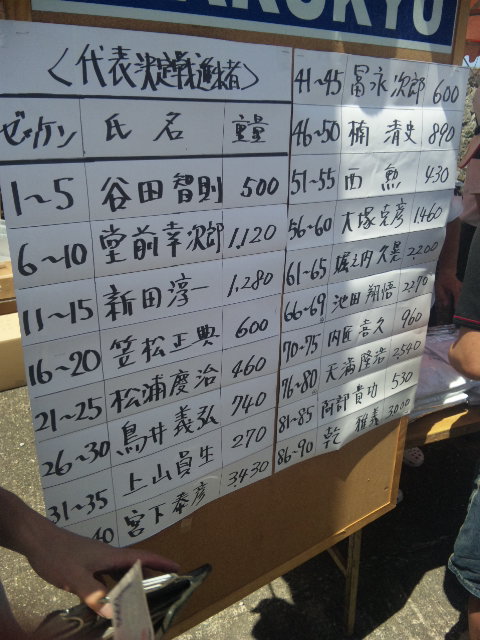 〈代表決定戦進出者〉
ゼッケン 氏名 重量
1～5 谷田智則 500
6～10 堂前幸次郎 1,120
11～15 新田淳一 1,280
16～20 笠松正典 600
21～25 松浦慶治 460
26～30 鳥井義弘 740
31～35 上山員生 270
40 宮下泰彦 3,430
41～45 冨永次郎 600
46～50 楠清史 890
51～55 西勲 430
56～60 大塚克彦 1,460
61～65 堀之内久晃 2,200
66～69 池田翔悟
70～75 内匠喜久 960
76～80 天満隆浩 2540
81～85 阿部貴功 530
86～90 乾雅義